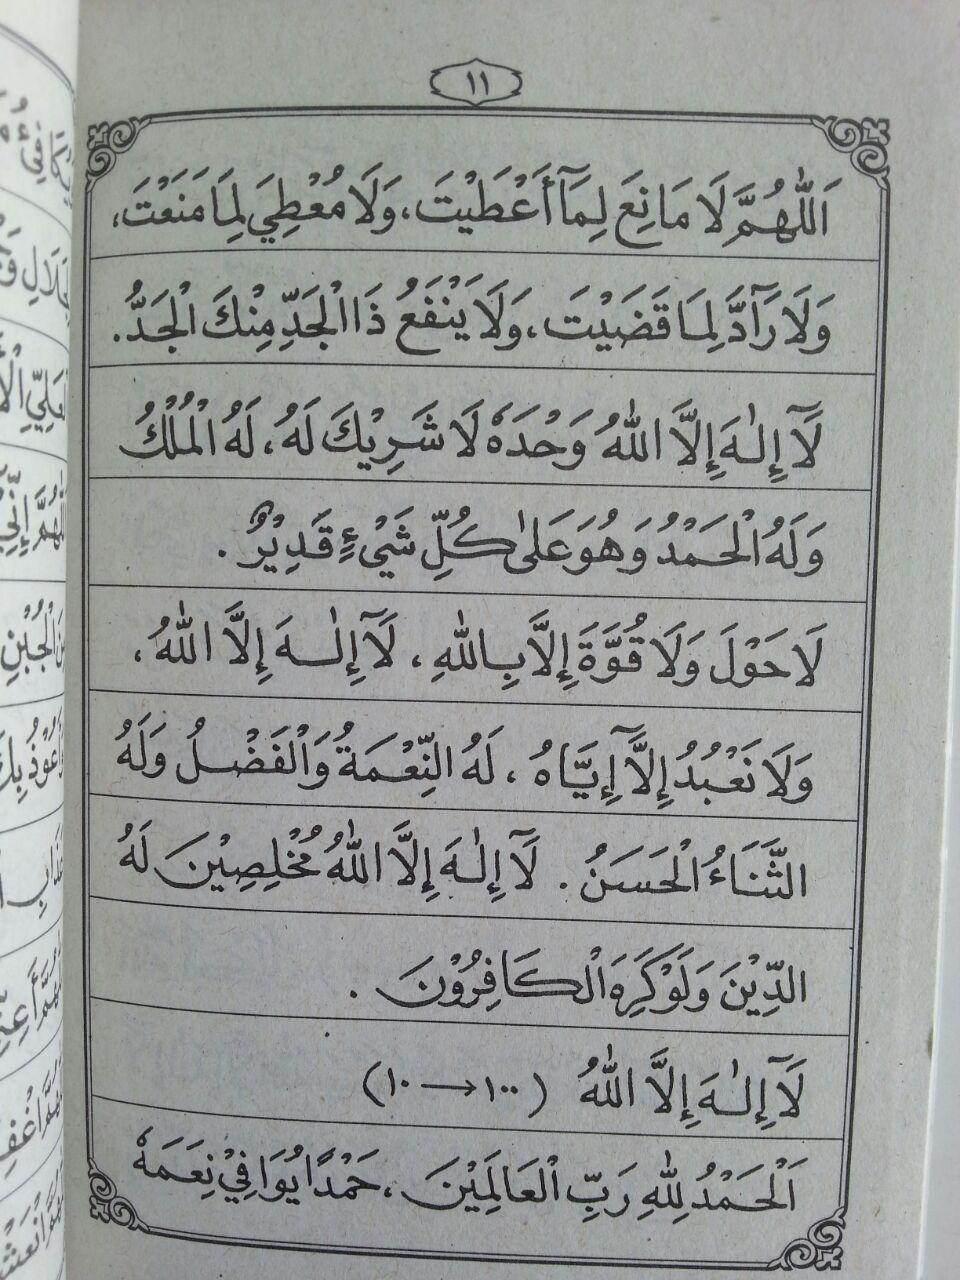 ١١
اَللّٰهُمَّ لَا مَانِعَ لِمَآ أَعْطَيْتَ، وَلَا مُعْطِيَ لِمَا مَنَعْتَ،
وَلَا رَآدَّ لِمَا قَضَيْتَ، وَلَا يَنْفَعُ ذَا الْجَدِّ مِنْكَ الْجَدُّ.
لَآ إِلٰهَ إِلَّا اللّٰهُ وَحْدَهُ لَا شَرِيْكَ لَهُ، لَهُ الْمُلْكُ
وَلَهُ الْحَمْدُ وَهُوَ عَلٰى كُلِّ شَيْءٍ قَدِيْرٌ.
لَا حَوْلَ وَلَا قُوَّةَ إِلَّا بِاللّٰهِ، لَآ إِلٰهَ إِلَّا اللّٰهُ،
وَلَا نَعْبُدُ إِلَّآ إِيَّاهُ، لَهُ النِّعْمَةُ وَالْفَضْلُ وَلَهُ
الثَّنَاءُ الْحَسَنُ. لَآ إِلٰهَ إِلَّا اللّٰهُ مُخْلِصِيْنَ لَهُ
الدِّيْنَ وَلَوْ كَرِهَ الْكَافِرُوْنَ.
لَآ إِلٰهَ إِلَّا اللّٰهُ (١٠٠ → ١٠)
اَلْحَمْدُ لِلّٰهِ رَبِّ الْعَالَمِيْنَ، حَمْدًا يُوَافِيْ نِعَمَهُ